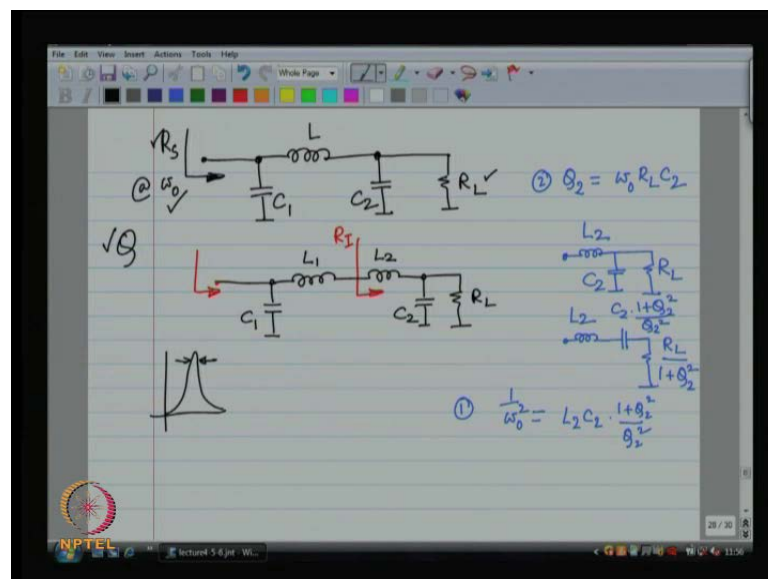 File Edit View Insert Actions Tools Help
Whole Page
B I
L
√Rs
@ ω₀
✓
C₁
C₂
R_L ✓
② Q₂ = ω₀ R_L C₂
√Q
R_I
L₁ L₂
C₁
C₂
R_L
L₂
C₂
R_L
C₂ · (1+Q₂²)/Q₂²
L₂
R_L/(1+Q₂²)
① 1/ω₀² = L₂ C₂ · (1+Q₂²)/Q₂²
28 / 30
NPTEL
lecture4-5-6.jnt - Wi...
11:56